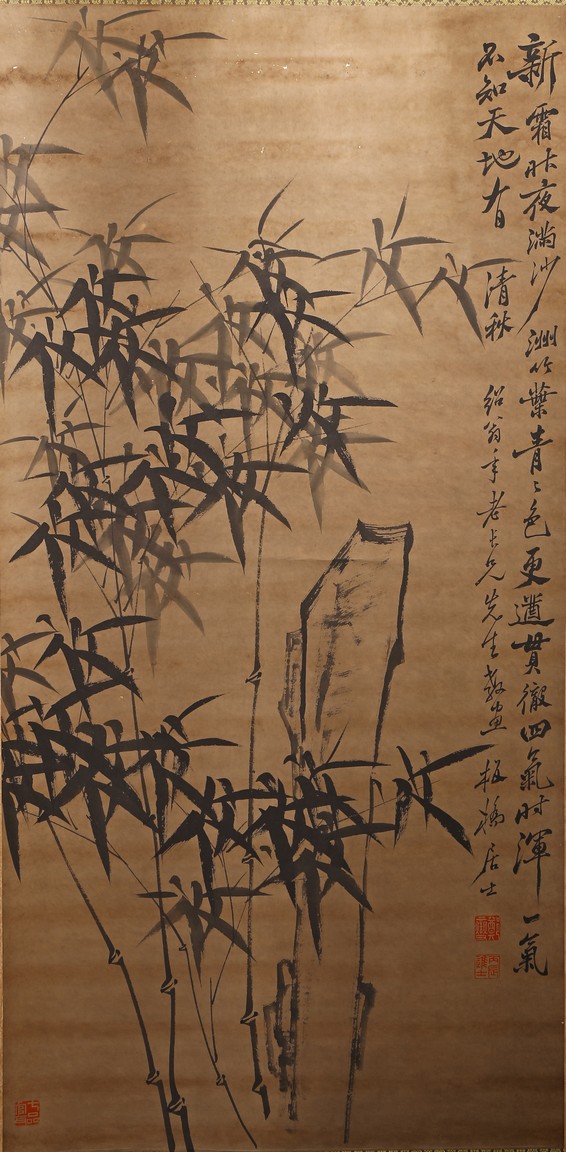 新霜昨夜滿沙洲竹葉青〻色更遒貫徹四氣时渾一氣
不知天地有清秋 紹翁年老長兄先生教畫 板橋居士